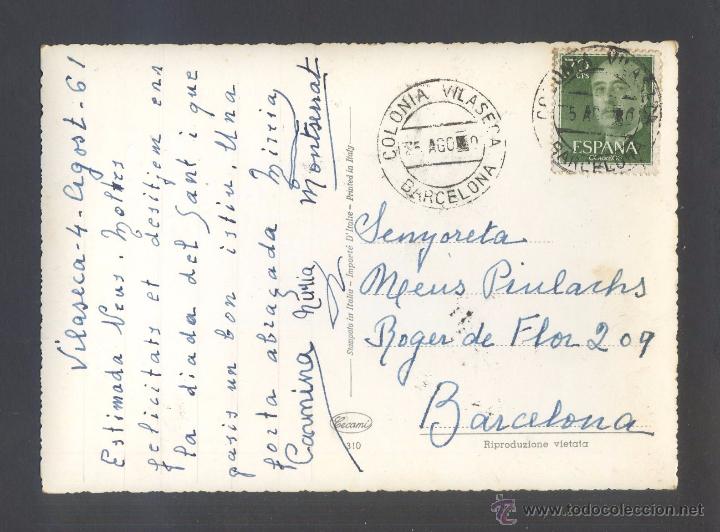 Vilaseca-4-Agost-61
Estimada Neus. Moltes
felicitats et desitjem en
la diada del Sant i que
pasis un bon istiu. Una
forta abraçada Mireia
Carmina Núria Montserrat
Stampato in Italia - Importé D'Italie - Printed in Italy
Cecami
310
COLONIA VILASECA
5 AGO
BARCELONA
COLONIA VILASECA
5 AGO
BARCELONA
CTS
ESPAÑA
CORREOS
Senyoreta
Neus Piulachs
Roger de Flor 209
Barcelona
Riproduzione vietata
todocoleccion
www.todocoleccion.net